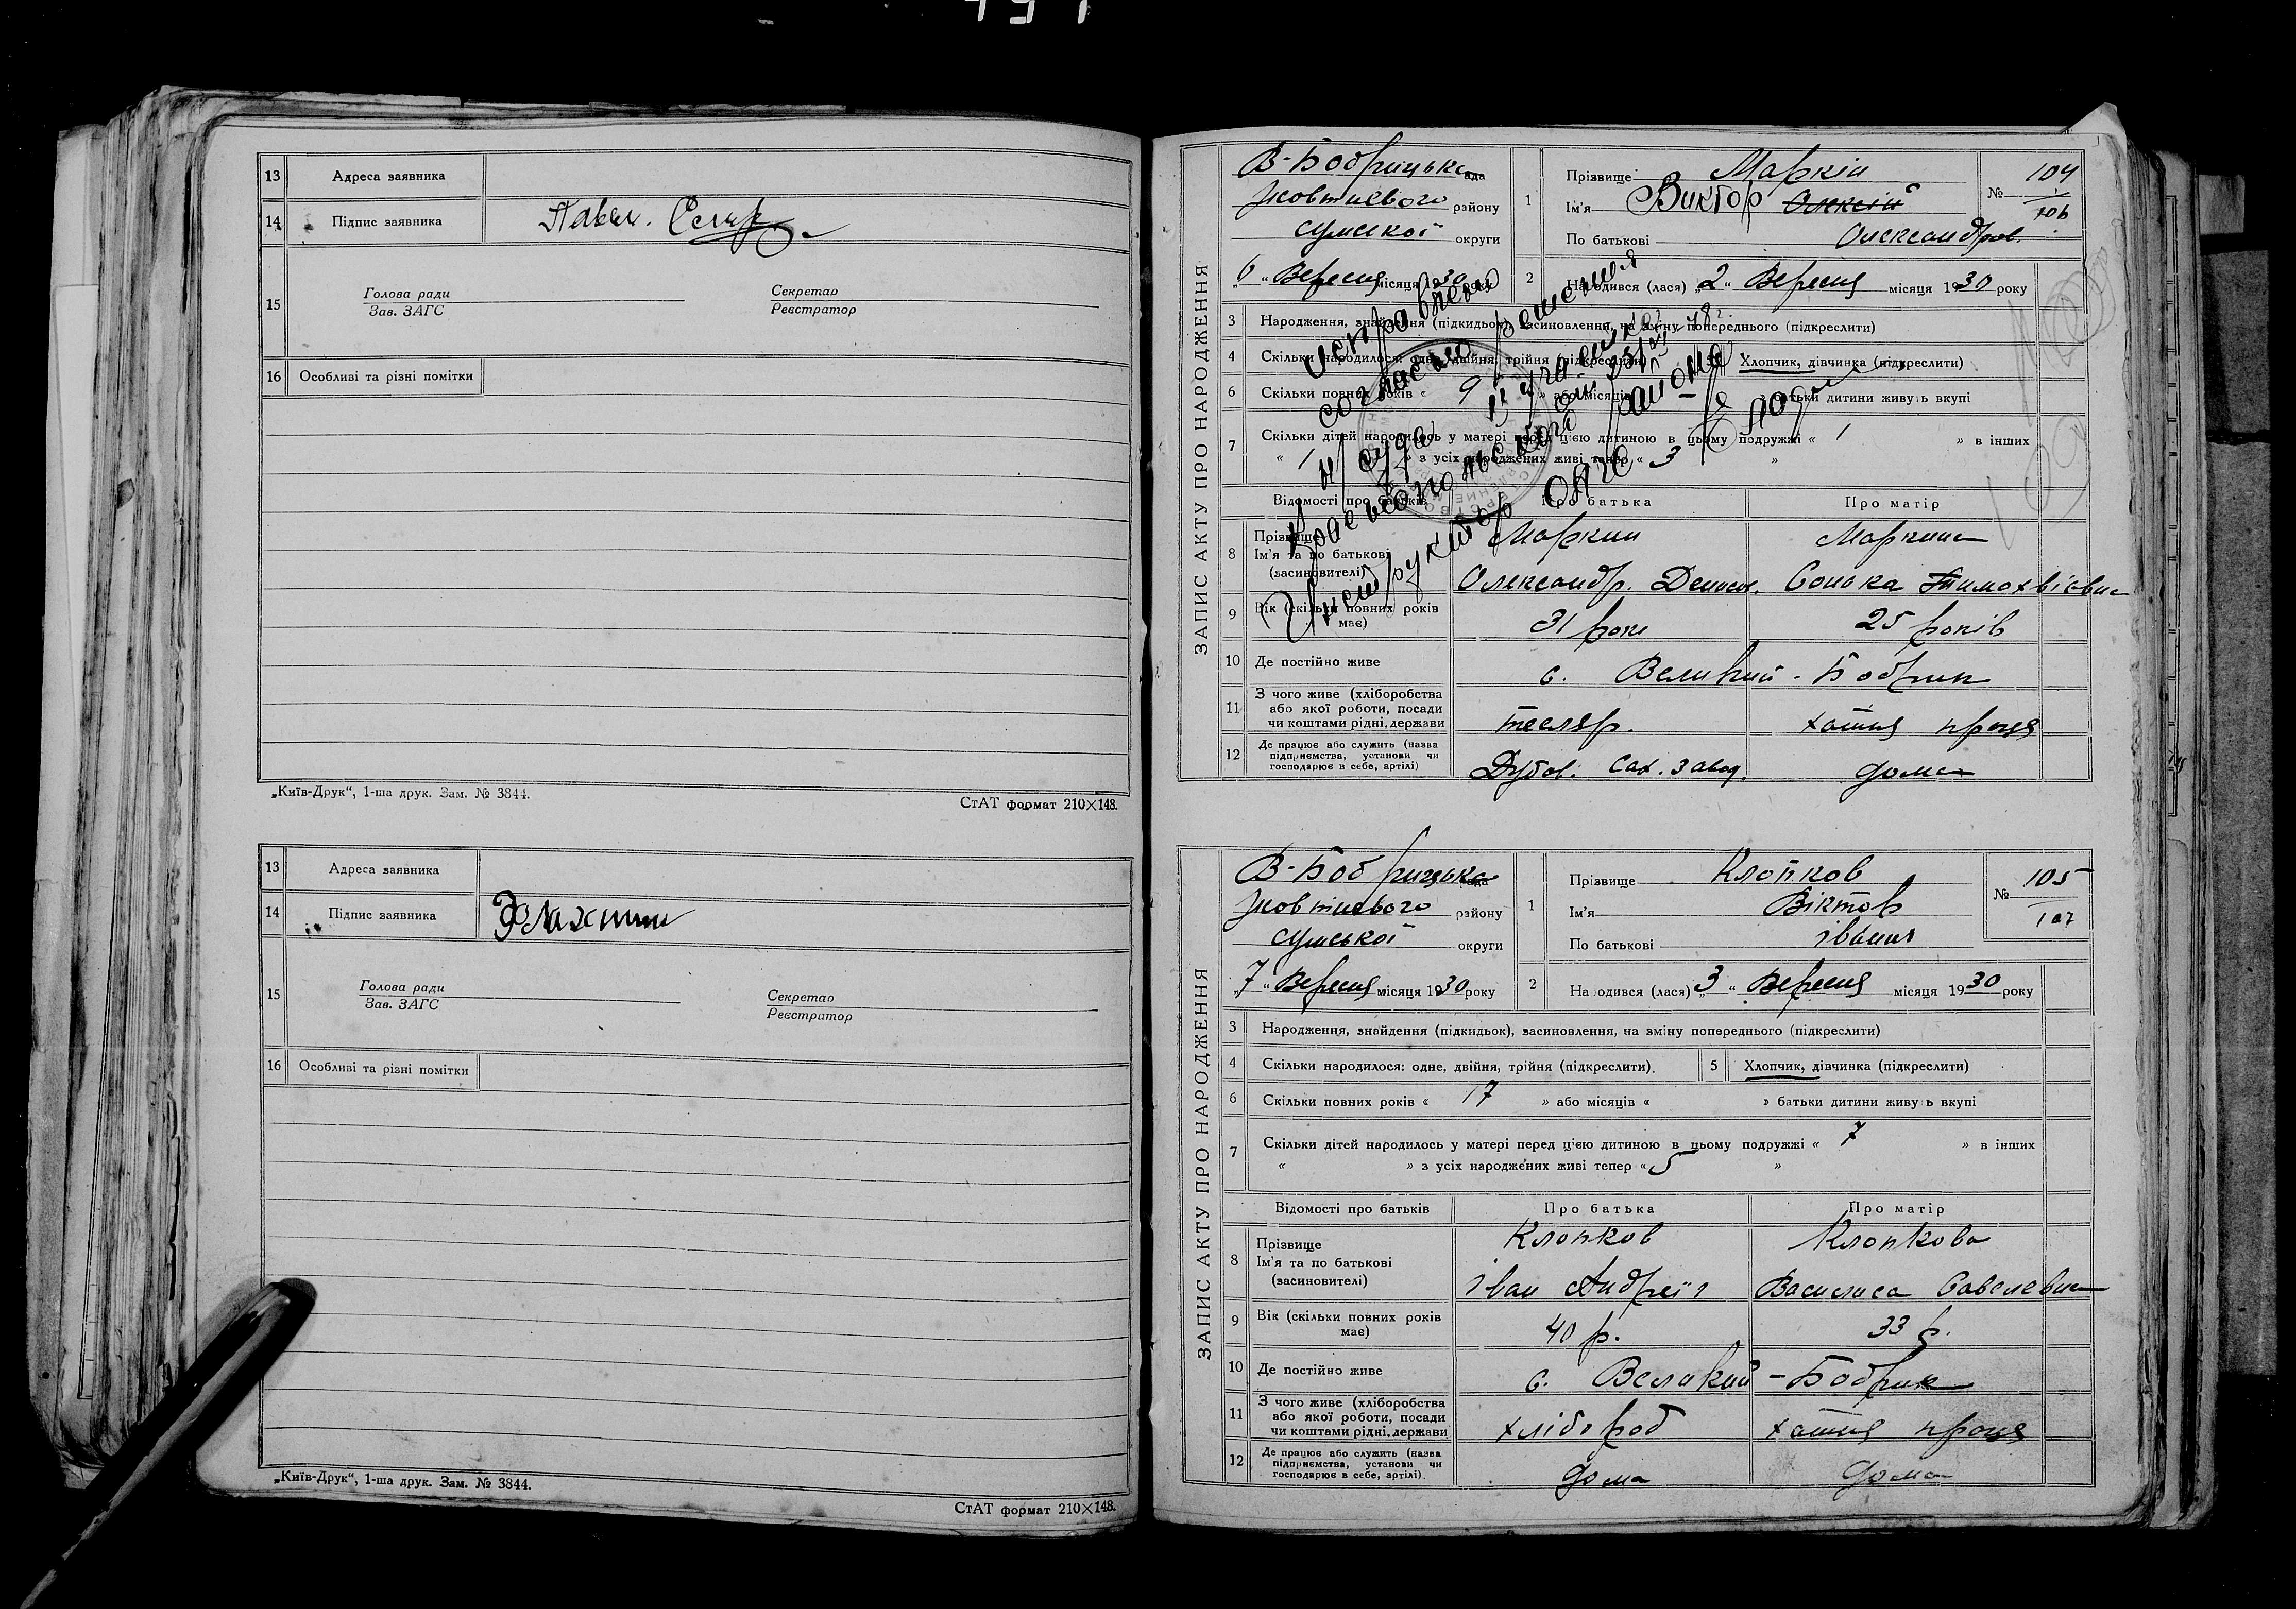 13 Адреса заявника
14 Підпис заявника Павел.
15 Голова ради Секретар
Зав. ЗАГС Реєстратор
16 Особливі та різні помітки
„Київ-Друк“, 1-ша друк. Зам. № 3844.
СтАТ формат 210×148.
13 Адреса заявника
14 Підпис заявника
15 Голова ради Секретар
Зав. ЗАГС Реєстратор
16 Особливі та різні помітки
„Київ-Друк“, 1-ша друк. Зам. № 3844.
СтАТ формат 210×148.
ЗАПИС АКТУ ПРО НАРОДЖЕННЯ
В-Бобрицька рада
Жовтневого району
Сумської округи
„6“ Вересня місяця 1930 року
1 Прізвище Маркін
Ім'я Виктор Олексій
По батькові Олександров.
№ 104
106
2 Народився (лася) „2“ Вересня місяця 1930 року
3 Народження, знайдення (підкидьок), засиновлення, на зміну попереднього (підкреслити)
4 Скільки народилося: одне, двійня, трійня (підкреслити) 5 Хлопчик, дівчинка (підкреслити)
6 Скільки повних років « 9 » або місяців « » батьки дитини живуть вкупі
7 Скільки дітей народилось у матері перед цією дитиною в цьому подружжі « 1 » в інших
« 1 » з усіх народжених живі тепер « 3 »
исправлено
согласно решения
н/суда II участка
от 23/
района
Инструктор ОАГС
Відомості про батьків Про батька Про матір
8 Прізвище Маркин Маркина
Ім'я та по батькові
(засиновителі) Олександр. Денисов. Сонька Тимохвієвна
9 Вік (скільки повних років має) 31 роки 25 років
10 Де постійно живе с. Великий - Бобрик
11 З чого живе (хліборобства або якої роботи, посади чи коштами рідні, держави тесляр. хатня праця
12 Де працює або служить (назва підприємства, установи чи господарює в себе, артілі) Дубов. Сах. завод. дома
ЗАПИС АКТУ ПРО НАРОДЖЕННЯ
В-Бобрицька рада
Жовтневого району
Сумської округи
„7“ Вересня місяця 1930 року
1 Прізвище Клопков
Ім'я Віктор
По батькові Іванів
№ 105
107
2 Народився (лася) „3“ Вересня місяця 1930 року
3 Народження, знайдення (підкидьок), засиновлення, на зміну попереднього (підкреслити)
4 Скільки народилося: одне, двійня, трійня (підкреслити). 5 Хлопчик, дівчинка (підкреслити)
6 Скільки повних років « 17 » або місяців « » батьки дитини живуть вкупі
7 Скільки дітей народилось у матері перед цією дитиною в цьому подружжі « 7 » в інших
« » з усіх народжених живі тепер « 5 »
Відомості про батьків Про батька Про матір
8 Прізвище Клопков Клопкова
Ім'я та по батькові
(засиновителі) Іван Андреїв Василиса Савелевна
9 Вік (скільки повних років має) 40 р. 33 р.
10 Де постійно живе с. Великий - Бобрик
11 З чого живе (хліборобства або якої роботи, посади чи коштами рідні, держави хлібороб хатня праця
12 Де працює або служить (назва підприємства, установи чи господарює в себе, артілі). дома дома